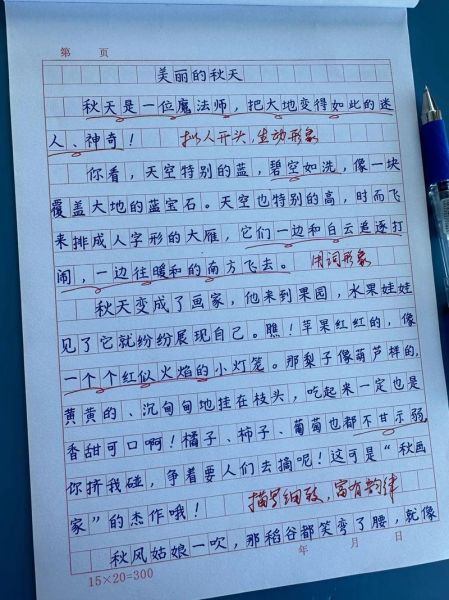 第 页
美丽的秋天
秋天是一位魔法师，把大地变得如此的迷
人、神奇！ 拟人开头，生动形象
你看，天空特别的蓝，碧空如洗，像一块
覆盖大地的蓝宝石。天空也特别的高，时而飞
来排成人字形的大雁，它们一边和白云追逐打
闹，一边往暖和的南方飞去。 用词形象
秋天变成了画家，他来到果园，水果娃娃
见了它就纷纷展现自己。瞧！苹果红红的，像
一个个红似火焰的小灯笼。那梨子像葫芦样的，
黄黄的、沉甸甸地挂在枝头，吃起来一定也是
香甜可口啊！橘子、柿子、葡萄也都不甘示弱，
你挤我碰，争着要人们去摘呢！这可是“秋画
家”的杰作哦！ 描写细致，富有韵律
秋风姑娘一吹，那稻谷都笑弯了腰，就像
15×20=300 年 月 日